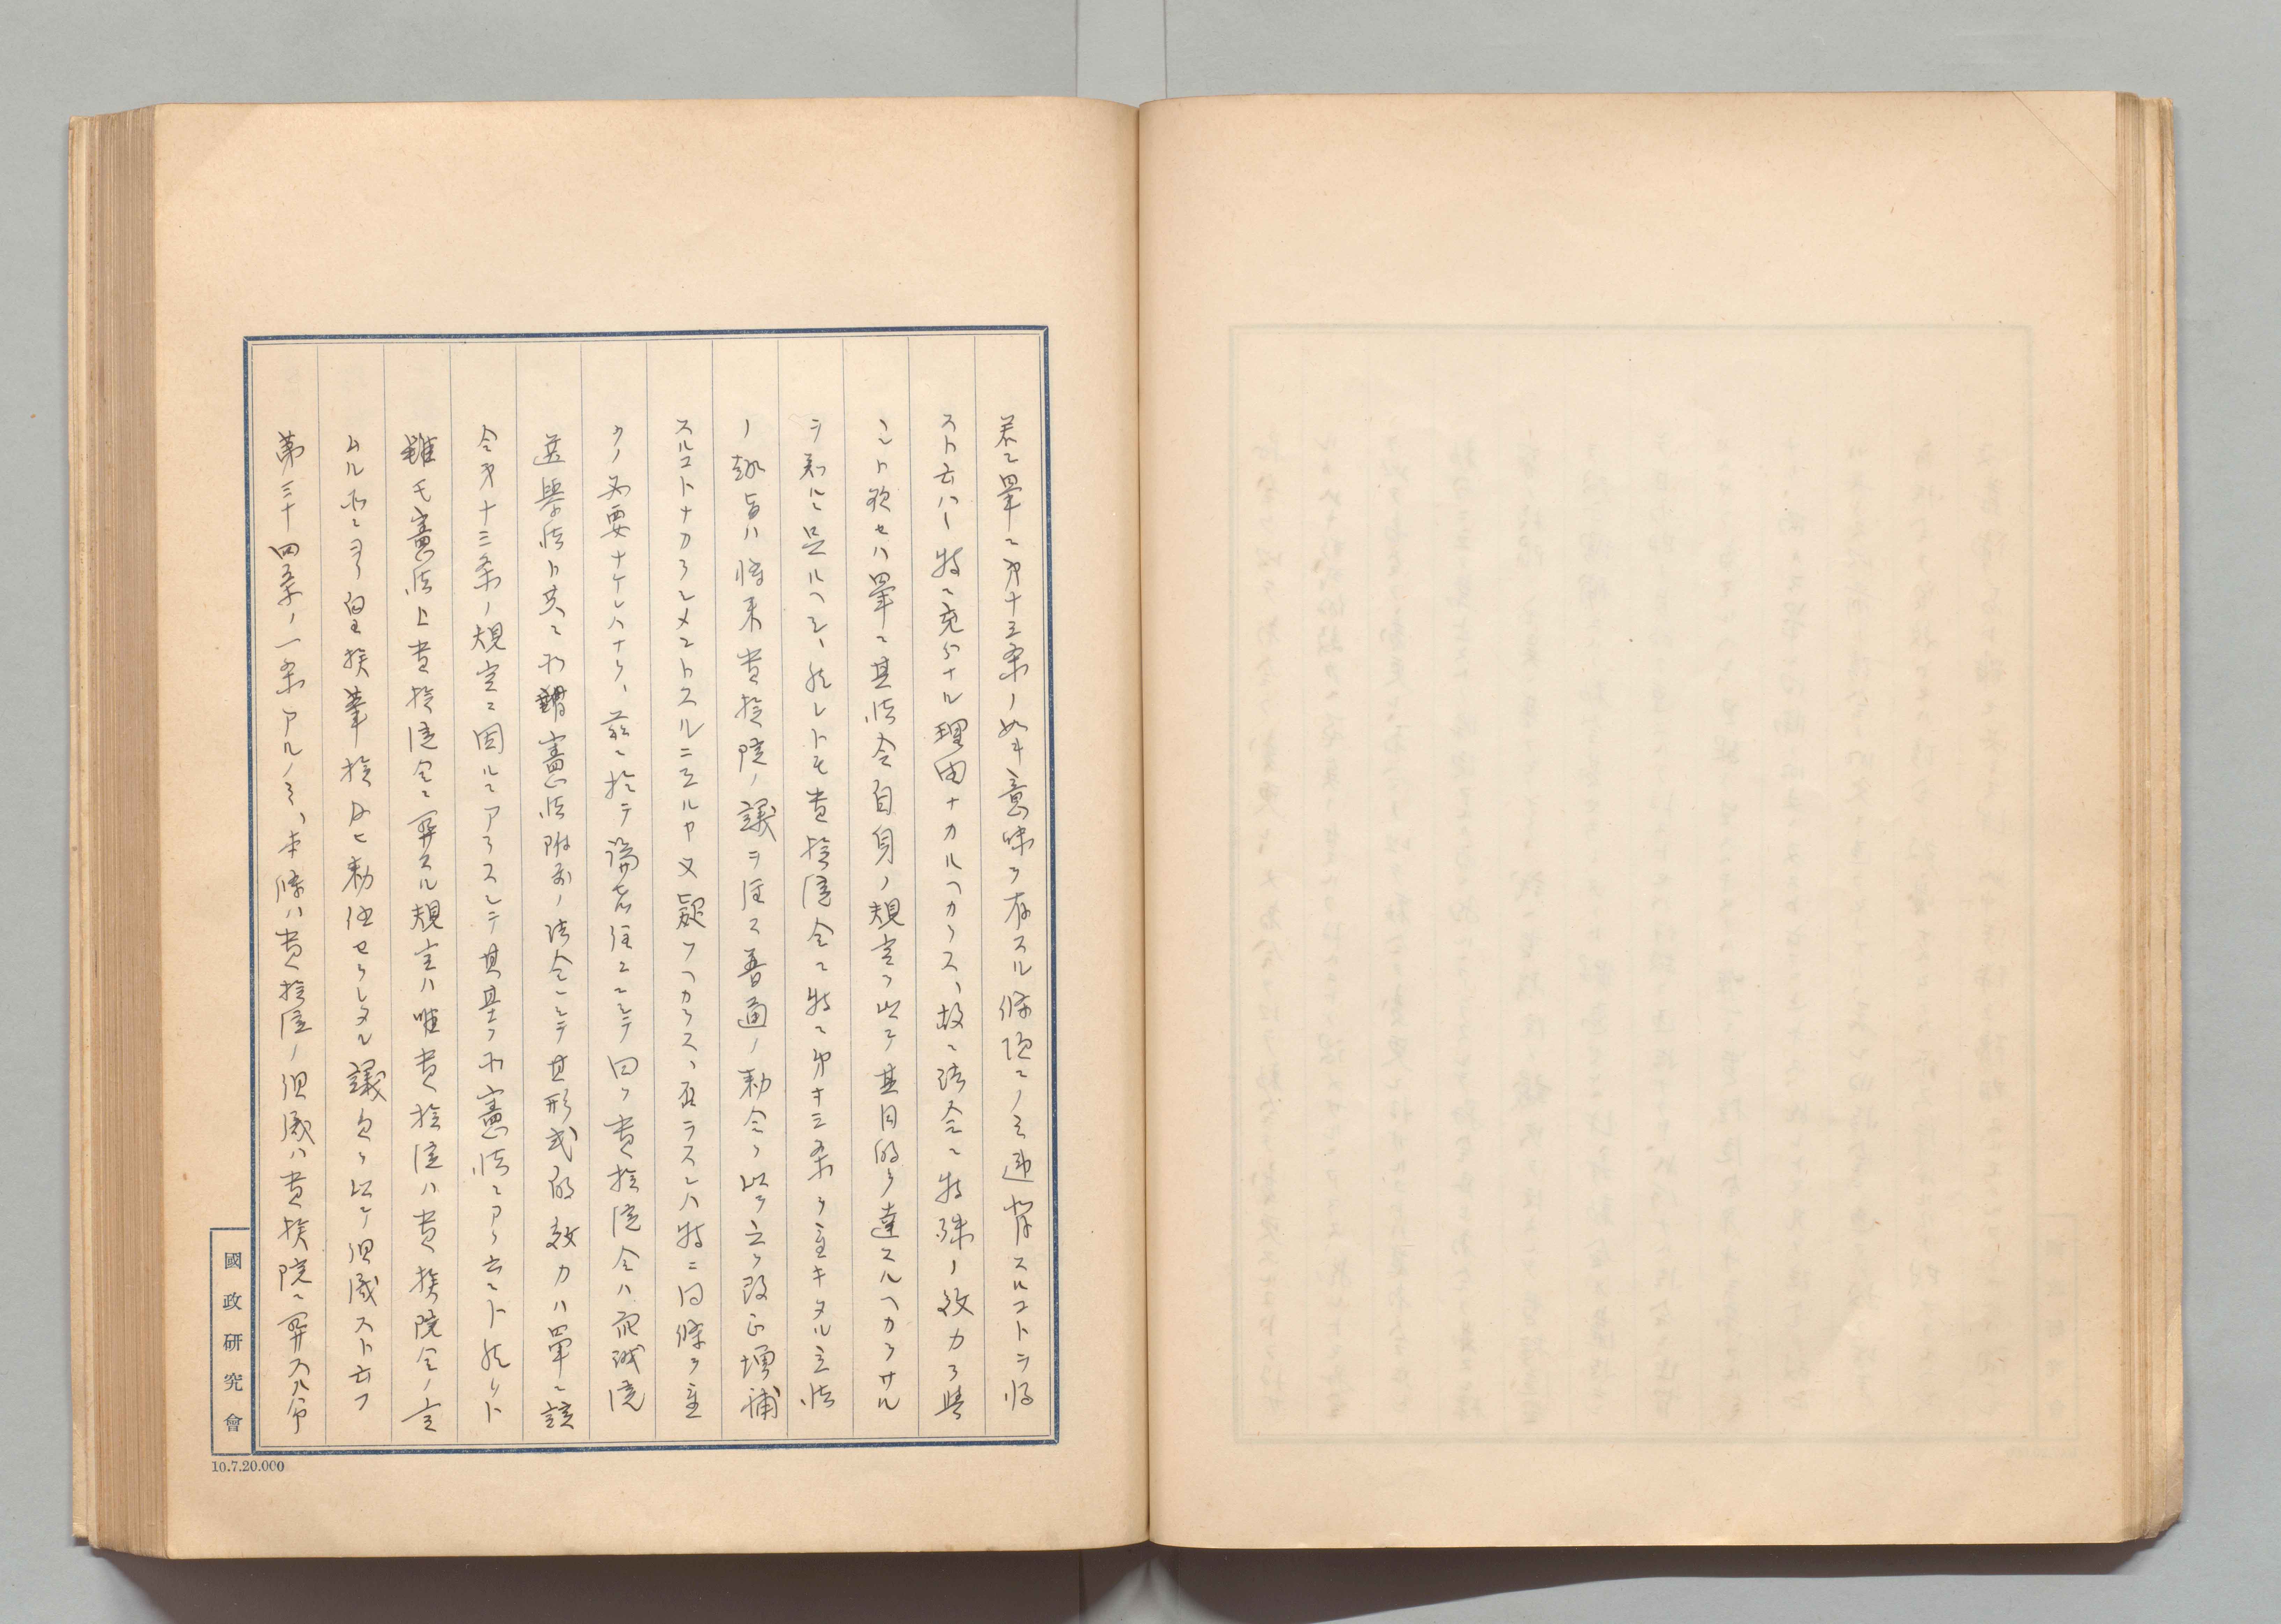 若シ單ニ第十三条ノ如キ意味ヲ存スル條項ニノミ違背スルコトヲ得
スト云ハヽ特ニ充分ナル理由ナカルヘカラス、故ニ法令ニ特殊ノ效力ヲ與
ヘント欲セハ單ニ其法令自身ノ規定ヲ以テ其目的ヲ達スルヘカラサル
ヲ知ルニ足ルヘシ、然レトモ貴族院令ニ特ニ第十三条ヲ置キタル立法
ノ趣旨ハ将来貴族院ノ議ヲ経ス普通ノ勅令ヲ以テ之ヲ改正増補
スルコトナカラシメントスルニ在ルヤ又疑フヘカラス、否ラスンハ特ニ同條ヲ置
クノ必要ナケレハナリ、茲ニ於テ論者往々ニシテ曰ク貴族院令ハ衆議院
選擧法ト共ニ所謂憲法附属ノ法令ニシテ其形式的效力ハ單ニ該
令第十三条ノ規定ニ因ルニアラスシテ其基ク所憲法ニアリ云々ト然リト
雖モ憲法上貴族院令ニ関スル規定ハ唯貴族院ハ貴族院令ノ定
ムル所ニヨリ皇族華族及ヒ勅任セラレタル議員ヲ以テ組織スト云フ
第三十四条ノ一条アルノミ、本條ハ貴族院ノ組織ハ貴族院ニ関スル令
國政研究會
10.7.20.000